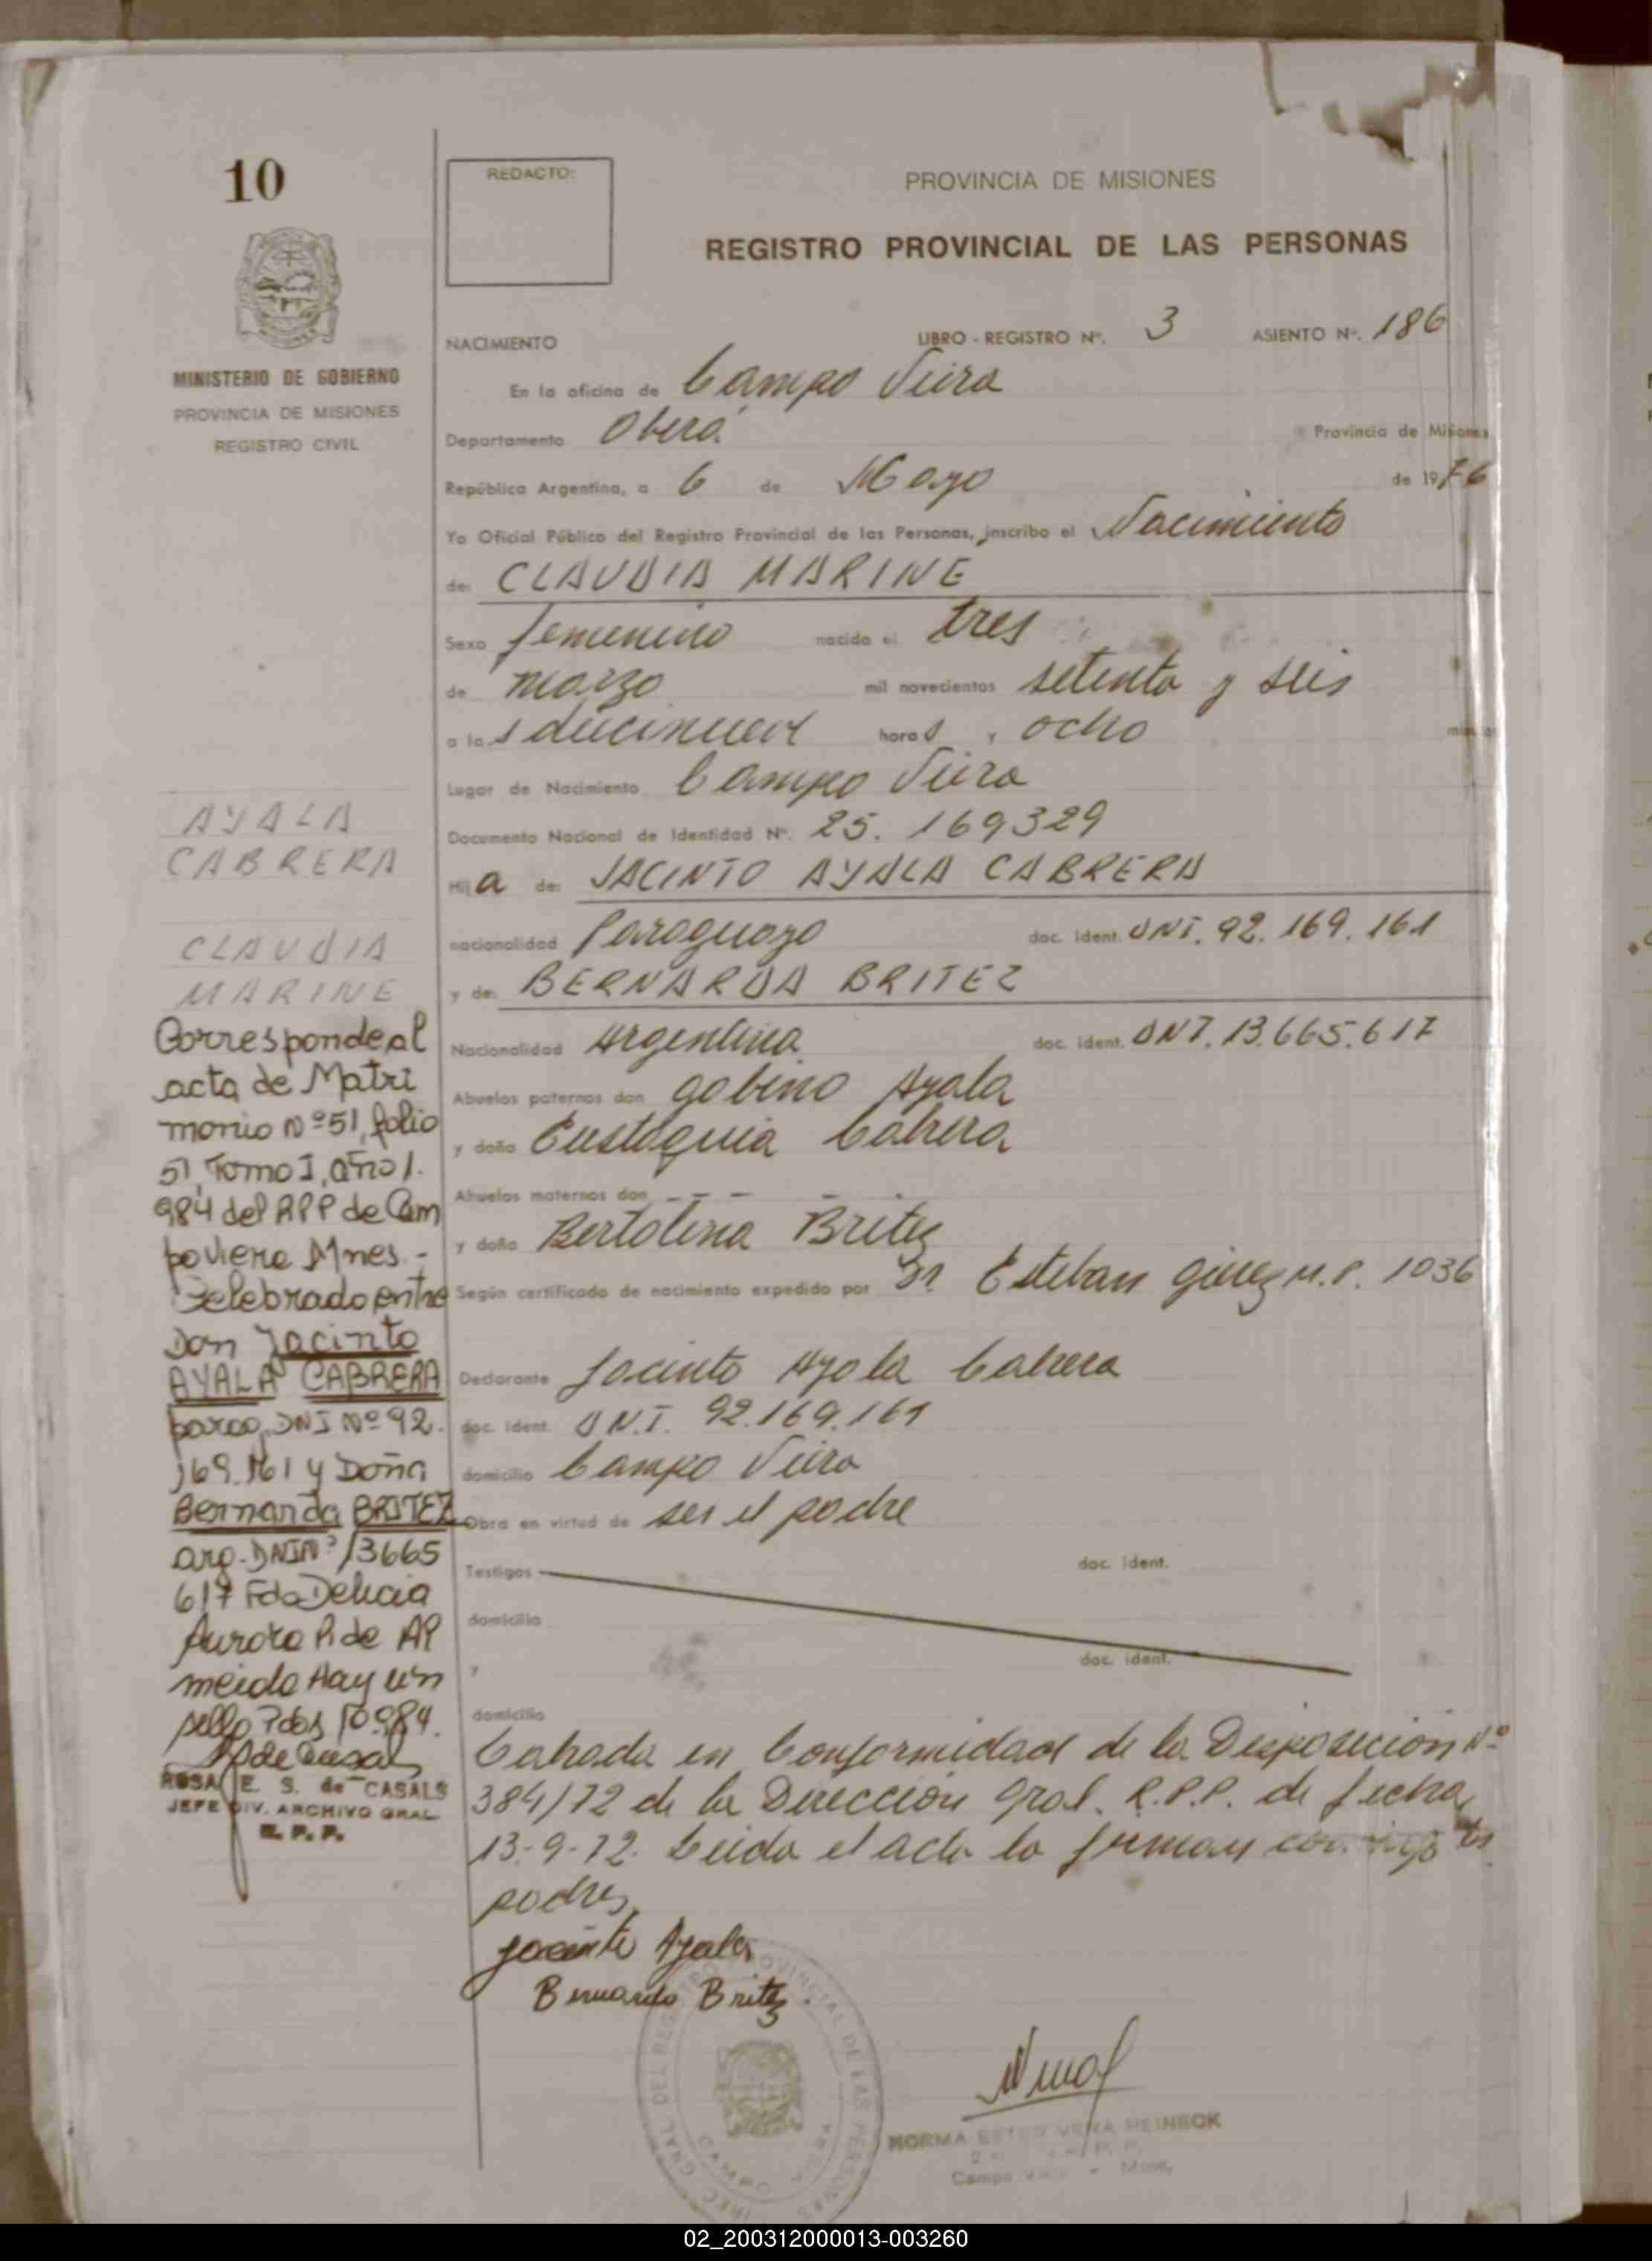 10
MINISTERIO DE GOBIERNO
PROVINCIA DE MISIONES
REGISTRO CIVIL
AYALA
CABRERA
CLAUDIA
MARINE
Corresponde al
acta de Matri
monio Nº 51, folio
51, Tomo I, año 1.
984 del RPP de Cam
po Viera Mnes.-
Celebrado entre
Don Jacinto
AYALA CABRERA
parag. DNI Nº 92.
169.161 y Doña
Bernarda BRITEZ
arg. DNI Nº 13665
617 Fdo Delicia
Aurora P. de Al
meida Hay un
sello Pdas
ROSA E. S. de CASALS
JEFE DIV. ARCHIVO GRAL
R. P. P.
REDACTO:
PROVINCIA DE MISIONES
REGISTRO PROVINCIAL DE LAS PERSONAS
NACIMIENTO LIBRO - REGISTRO Nº. 3 ASIENTO Nº. 186
En la oficina de Campo Viera
Departamento Oberá Provincia de Misiones
República Argentina, a 6 de Mayo de 1976
Yo Oficial Público del Registro Provincial de las Personas, inscribo el Nacimiento
de: CLAUDIA MARINE
Sexo femenino nacido el tres
de marzo mil novecientos setenta y seis
a las diecinueve horas y ocho minutos
Lugar de Nacimiento Campo Viera
Documento Nacional de Identidad Nº. 25.169329
Hija de: JACINTO AYALA CABRERA
nacionalidad Paraguayo doc. ident. DNI. 92.169.161
y de: BERNARDA BRITEZ
Nacionalidad Argentina doc. ident. DNI. 13.665.617
Abuelos paternos don Gabino Ayala
y doña Eustaquia Cabrera
Abuelos maternos don - - - - -
y doña Bertolina Britez
Según certificado de nacimiento expedido por Dr Esteban M.P. 1036
Declarante Jacinto Ayala Cabrera
doc. ident. D.N.I. 92.169.161
domicilio Campo Viera
Obra en virtud de ser el padre
Testigos doc. ident.
domicilio
y doc. ident.
domicilio
Labrada en Conformidad de la Disposición Nº
384/72 de la Dirección Gral. R.P.P. de fecha
13-9-72. Leida el acta la firman conmigo los
padres
Jacinto Ayala
Bernarda Britez
NORMA ESTER VERA HEINECK
Campo Viera - Mnes.
02_200312000013-003260